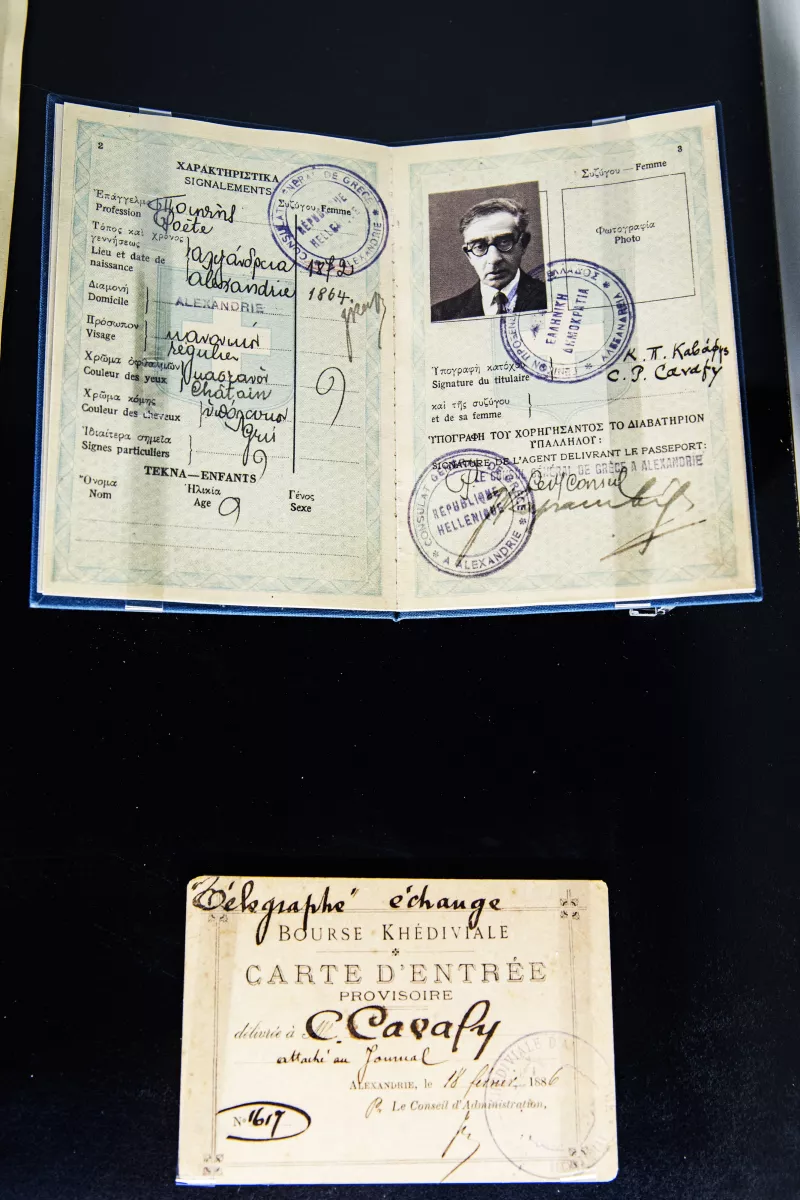 2
ΧΑΡΑΚΤΗΡΙΣΤΙΚΑ
SIGNALEMENTS
Συζύγου-Femme
Ἐπάγγελμα Ποιητής
Profession Poète
Τόπος καὶ χρόνος
γεννήσεως
Lieu et date de
naissance
Ἀλεξάνδρεια 1872
Alexandrie 1864
Διαμονή
Domicile
ALEXANDRIE
Πρόσωπον κανονικόν
Visage régulier
Χρῶμα ὀφθαλμῶν καστανοί
Couleur des yeux châtain
Χρῶμα κόμης
Couleur des cheveux gris
Ἰδιαίτερα σημεῖα
Signes particuliers
ΤΕΚΝΑ—ENFANTS
Ὄνομα Ἡλικία Γένος
Nom Age Sexe
CONSULAT GÉNÉRAL DE GRÈCE
RÉPUBLIQUE
HELLÉNIQUE
3
Συζύγου—Femme
Φωτογραφία
Photo
ΕΛΛΗΝΙΚΗ
ΔΗΜΟΚΡΑΤΙΑ
Ὑπογραφὴ κατόχου Κ. Π. Καβάφης
Signature du titulaire C. P. Cavafy
καὶ τῆς συζύγου
et de sa femme
ΥΠΟΓΡΑΦΗ ΤΟΥ ΧΟΡΗΓΗΣΑΝΤΟΣ ΤΟ ΔΙΑΒΑΤΗΡΙΟΝ
ΥΠΑΛΛΗΛΟΥ:
SIGNATURE DE L'AGENT DÉLIVRANT LE PASSEPORT:
GÉNÉRAL DE GRÈCE A ALEXANDRIE
CONSULAT GÉNÉRAL DE GRÈCE
RÉPUBLIQUE
HELLÉNIQUE
A ALEXANDRIE
"Télégraphe" échange
BOURSE KHÉDIVIALE
CARTE D'ENTRÉE
PROVISOIRE
délivrée à M. C. Cavafy
attaché au Journal
ALEXANDRIE, le 18 février 1886
P. Le Conseil d'Administration,
No 1617